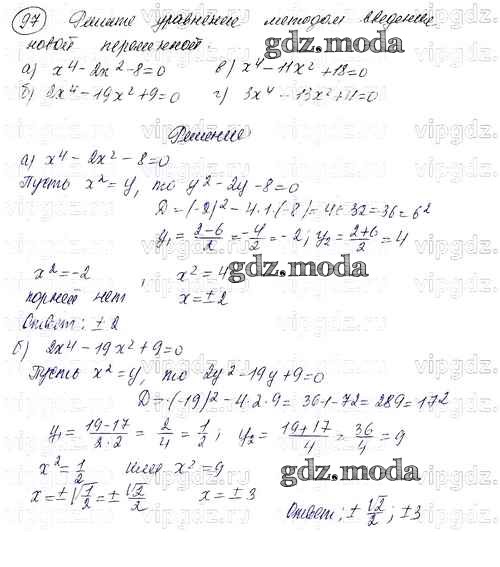 97 Решите уравнение методом введения
новой переменной.
а) x⁴ - 2x² - 8 = 0   в) x⁴ - 11x² + 18 = 0
б) 2x⁴ - 19x² + 9 = 0   г) 3x⁴ - 13x² + 4 = 0
Решение
а) x⁴ - 2x² - 8 = 0
Пусть x² = y, то y² - 2y - 8 = 0
D = (-2)² - 4·1·(-8) = 4 + 32 = 36 = 6²
y₁ = (2-6)/2 = -4/2 = -2; y₂ = (2+6)/2 = 4
x² = -2 , x² = 4
корней нет x = ±2
Ответ: ±2
б) 2x⁴ - 19x² + 9 = 0
Пусть x² = y, то 2y² - 19y + 9 = 0
D = (-19)² - 4·2·9 = 361 - 72 = 289 = 17²
y₁ = (19-17)/(2·2) = 2/4 = 1/2; y₂ = (19+17)/4 = 36/4 = 9
x² = 1/2 или x² = 9
x = ±√(1/2) = ±√2/2   x = ±3
Ответ: ±√2/2; ±3
gdz.moda
gdz.moda
gdz.moda
vipgdz.ru